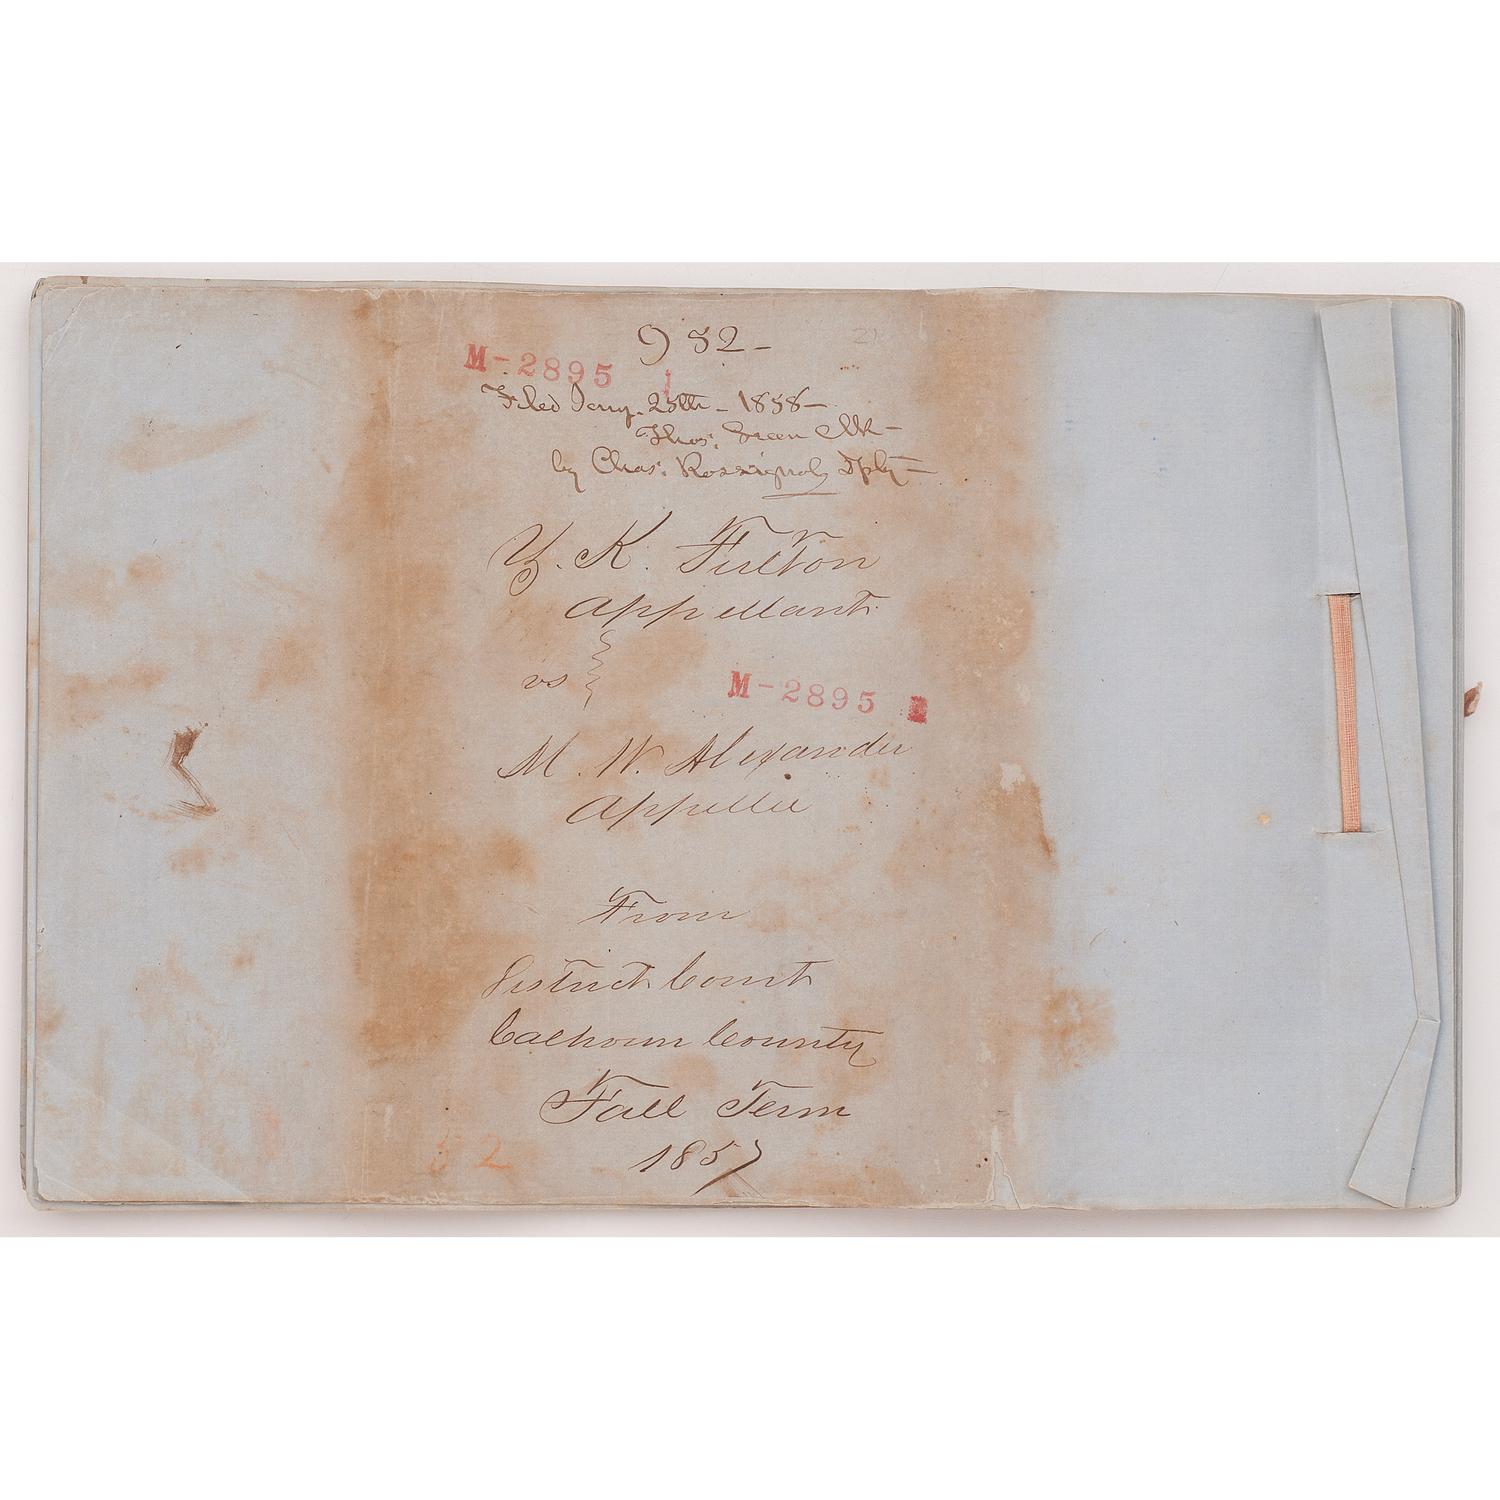 952-
M-2895
Filed Jany. 25th - 1858-
Thos. Green Clk-
by Chas. Rossignoly Dpty-
Y. K. Fulton
Appellant
vs
M-2895
M. W. Alexander
Appellee
From
District Court
Calhoun County
Fall Term
1857
52